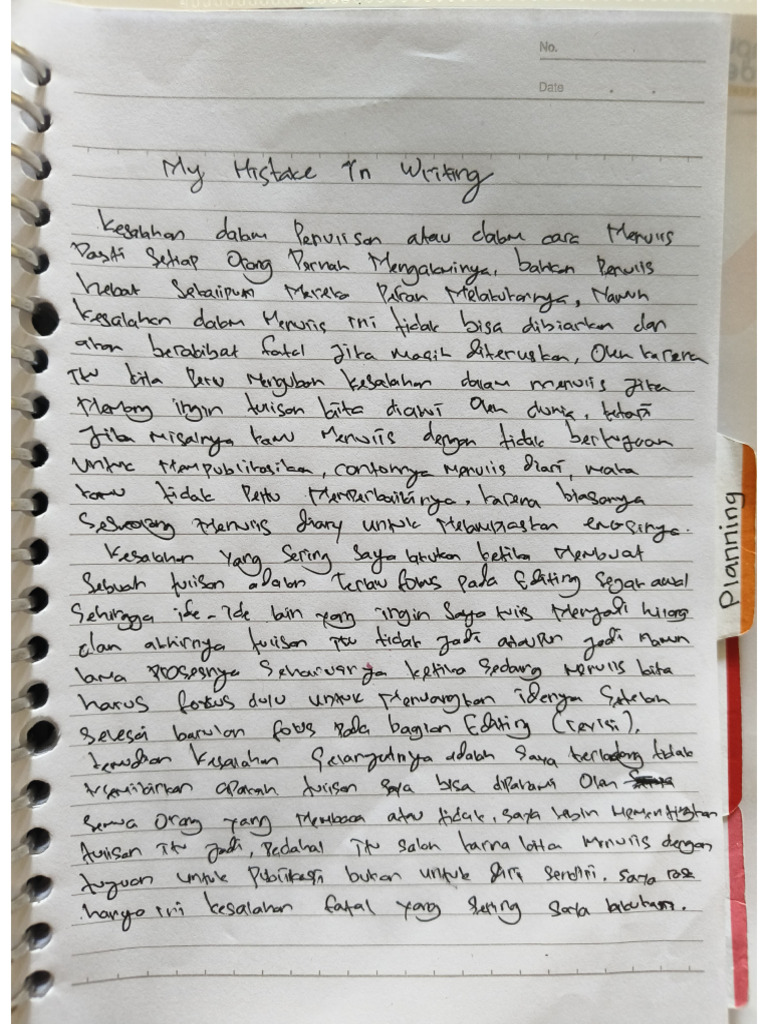 No.
Date
My Mistake in Writing
Kesalahan dalam Penulisan atau dalam cara Menulis
Pasti Setiap Orang Pernah Mengalaminya, bahkan Penulis
hebat Sekalipun Mereka Pernah Melakukannya, Namun
kesalahan dalam Menulis ini tidak bisa dibiarkan dan
akan berakibat fatal jika masih diteruskan, Oleh karena
itu kita Perlu Mengubah kesalahan dalam menulis Jika
Memang ingin tulisan kita diakui Oleh dunia, tetapi
Jika Misalnya kamu Menulis dengan tidak bertujuan
untuk Mempublikasikan, contohnya Menulis diari, maka
kamu tidak Perlu Memperbaikinya, karena biasanya
Seseorang Menulis diary untuk Melampiaskan emosinya.
Kesalahan yang Sering Saya lakukan ketika Membuat
Sebuah tulisan adalah Terlalu fokus pada Editing Sejak awal
Sehingga ide-ide lain yang ingin Saya tulis Menjadi hilang
dan akhirnya tulisan itu tidak jadi ataupun jadi Namun
lama Prosesnya Seharusnya ketika Sedang Menulis kita
harus fokus dulu untuk Menuangkan idenya Setelah
Selesai barulah fokus Pada bagian Editing (revisi).
Kemudian Kesalahan Selanjutnya adalah Saya terkadang tidak
memikirkan apakah tulisan Saya bisa dipahami Oleh
Semua Orang yang Membaca atau tidak, Saya lebih Mementingkan
tulisan itu Jadi, Padahal itu Salah karna kita Menulis dengan
tujuan untuk Publikasi bukan untuk diri Sendiri. Saya rasa
hanya ini kesalahan fatal yang Sering Saya lakukan.
Planning